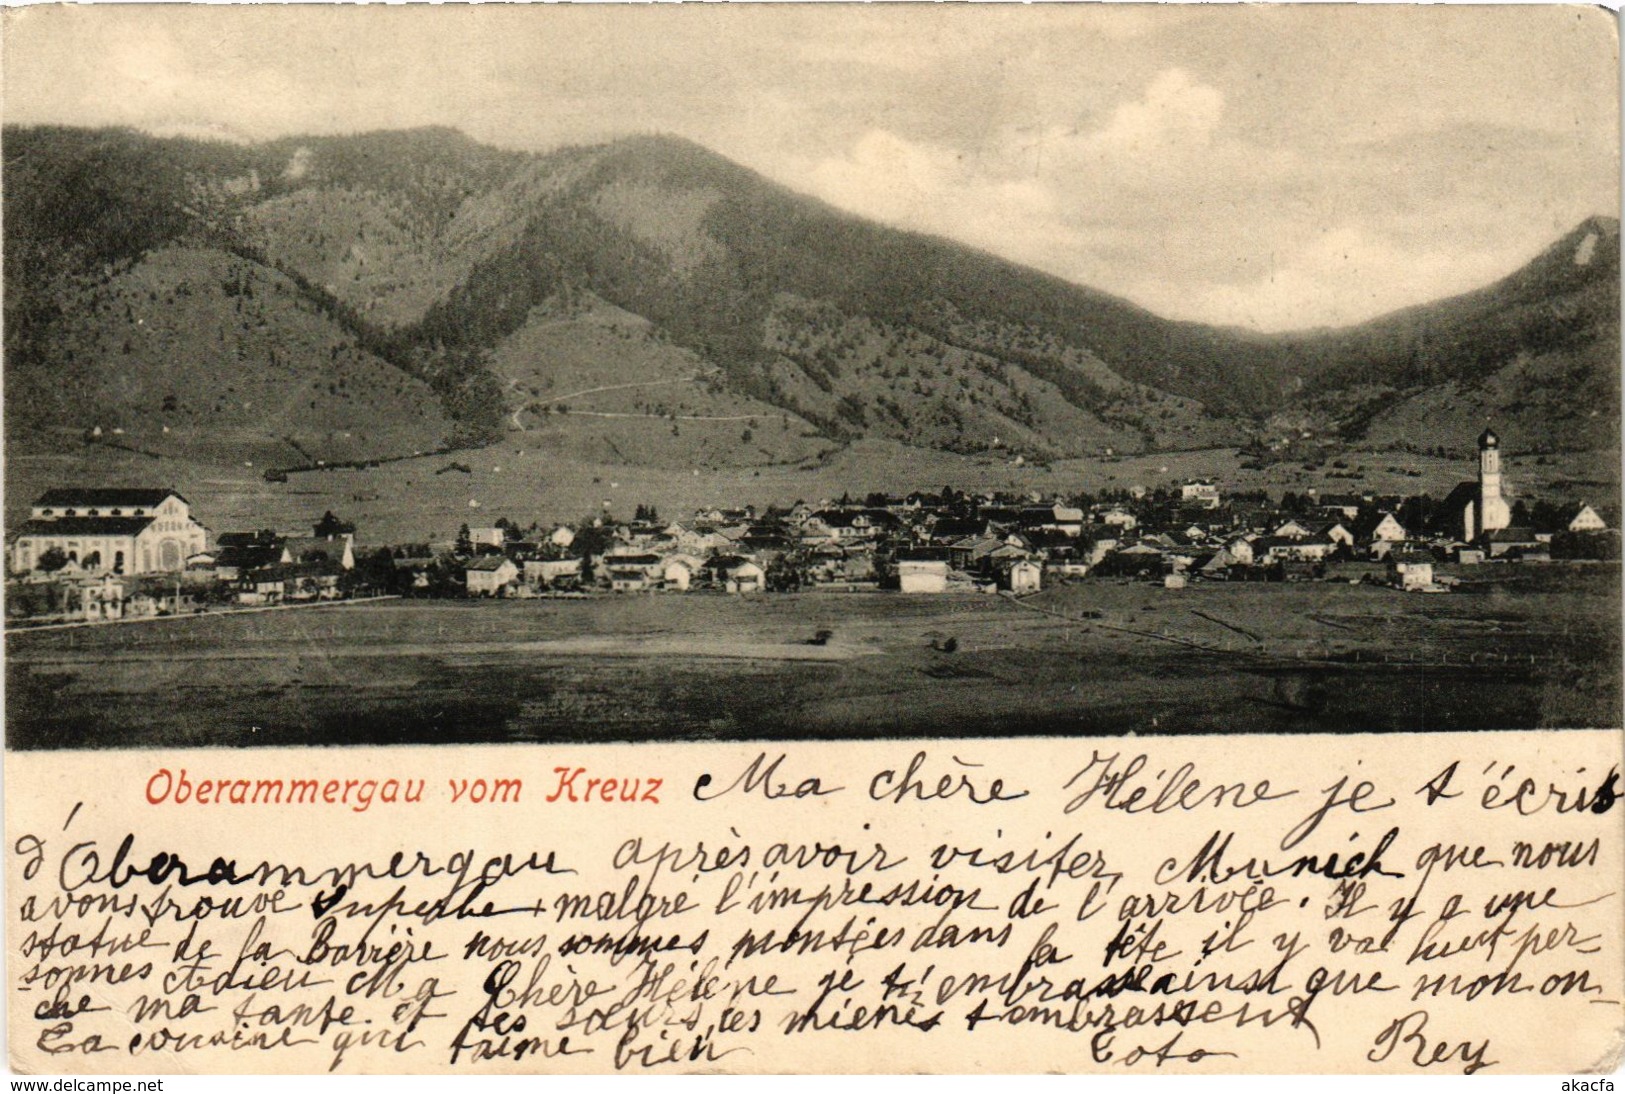 Oberammergau vom Kreuz Ma chère Hélène je t'écris
d'Oberammergau après avoir visiter Munich que nous
avons trouvé superbe malgré l'impression de l'arrivée. Il y a une
statue de la Bavière nous sommes montées dans la tête il y va huit per-
sonnes Adieu Ma Chère Hélène je t'embrasse ainsi que mon on-
cle ma tante et tes sœurs, les miènes t'embrassent
Ta cousine qui t'aime bien Toto Rey
www.delcampe.net
akacfa